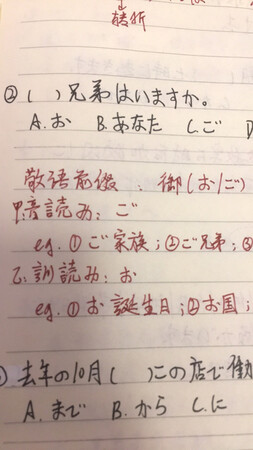 转折
② ( ) 兄弟はいますか。
A. お B. あなた C. ご D
敬语前缀、御(お/ご)
甲. 音読み: ご
eg. ①ご家族; ②ご兄弟; ③
乙. 訓読み: お
eg. ①お誕生日; ②お国;
) 去年の10月( )この店で働
A. まで B. から C. に